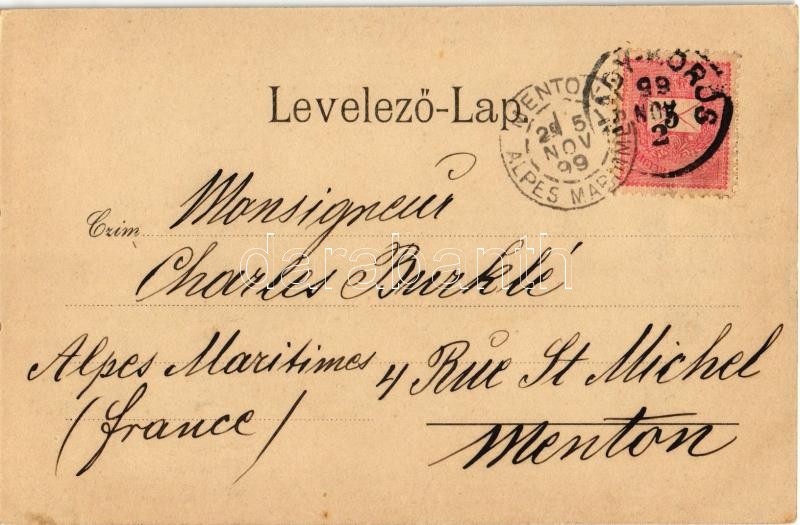 Levelező-Lap.
MENTON
2E 5
NOV
99
ALPES MARITIMES
NAGY-KŐRÖS
99
NOV
2
5
Czim
Monsigneur
Charles Burklé
darabanth
Alpes Maritimes 4 Rue St Michel
(france)
Menton